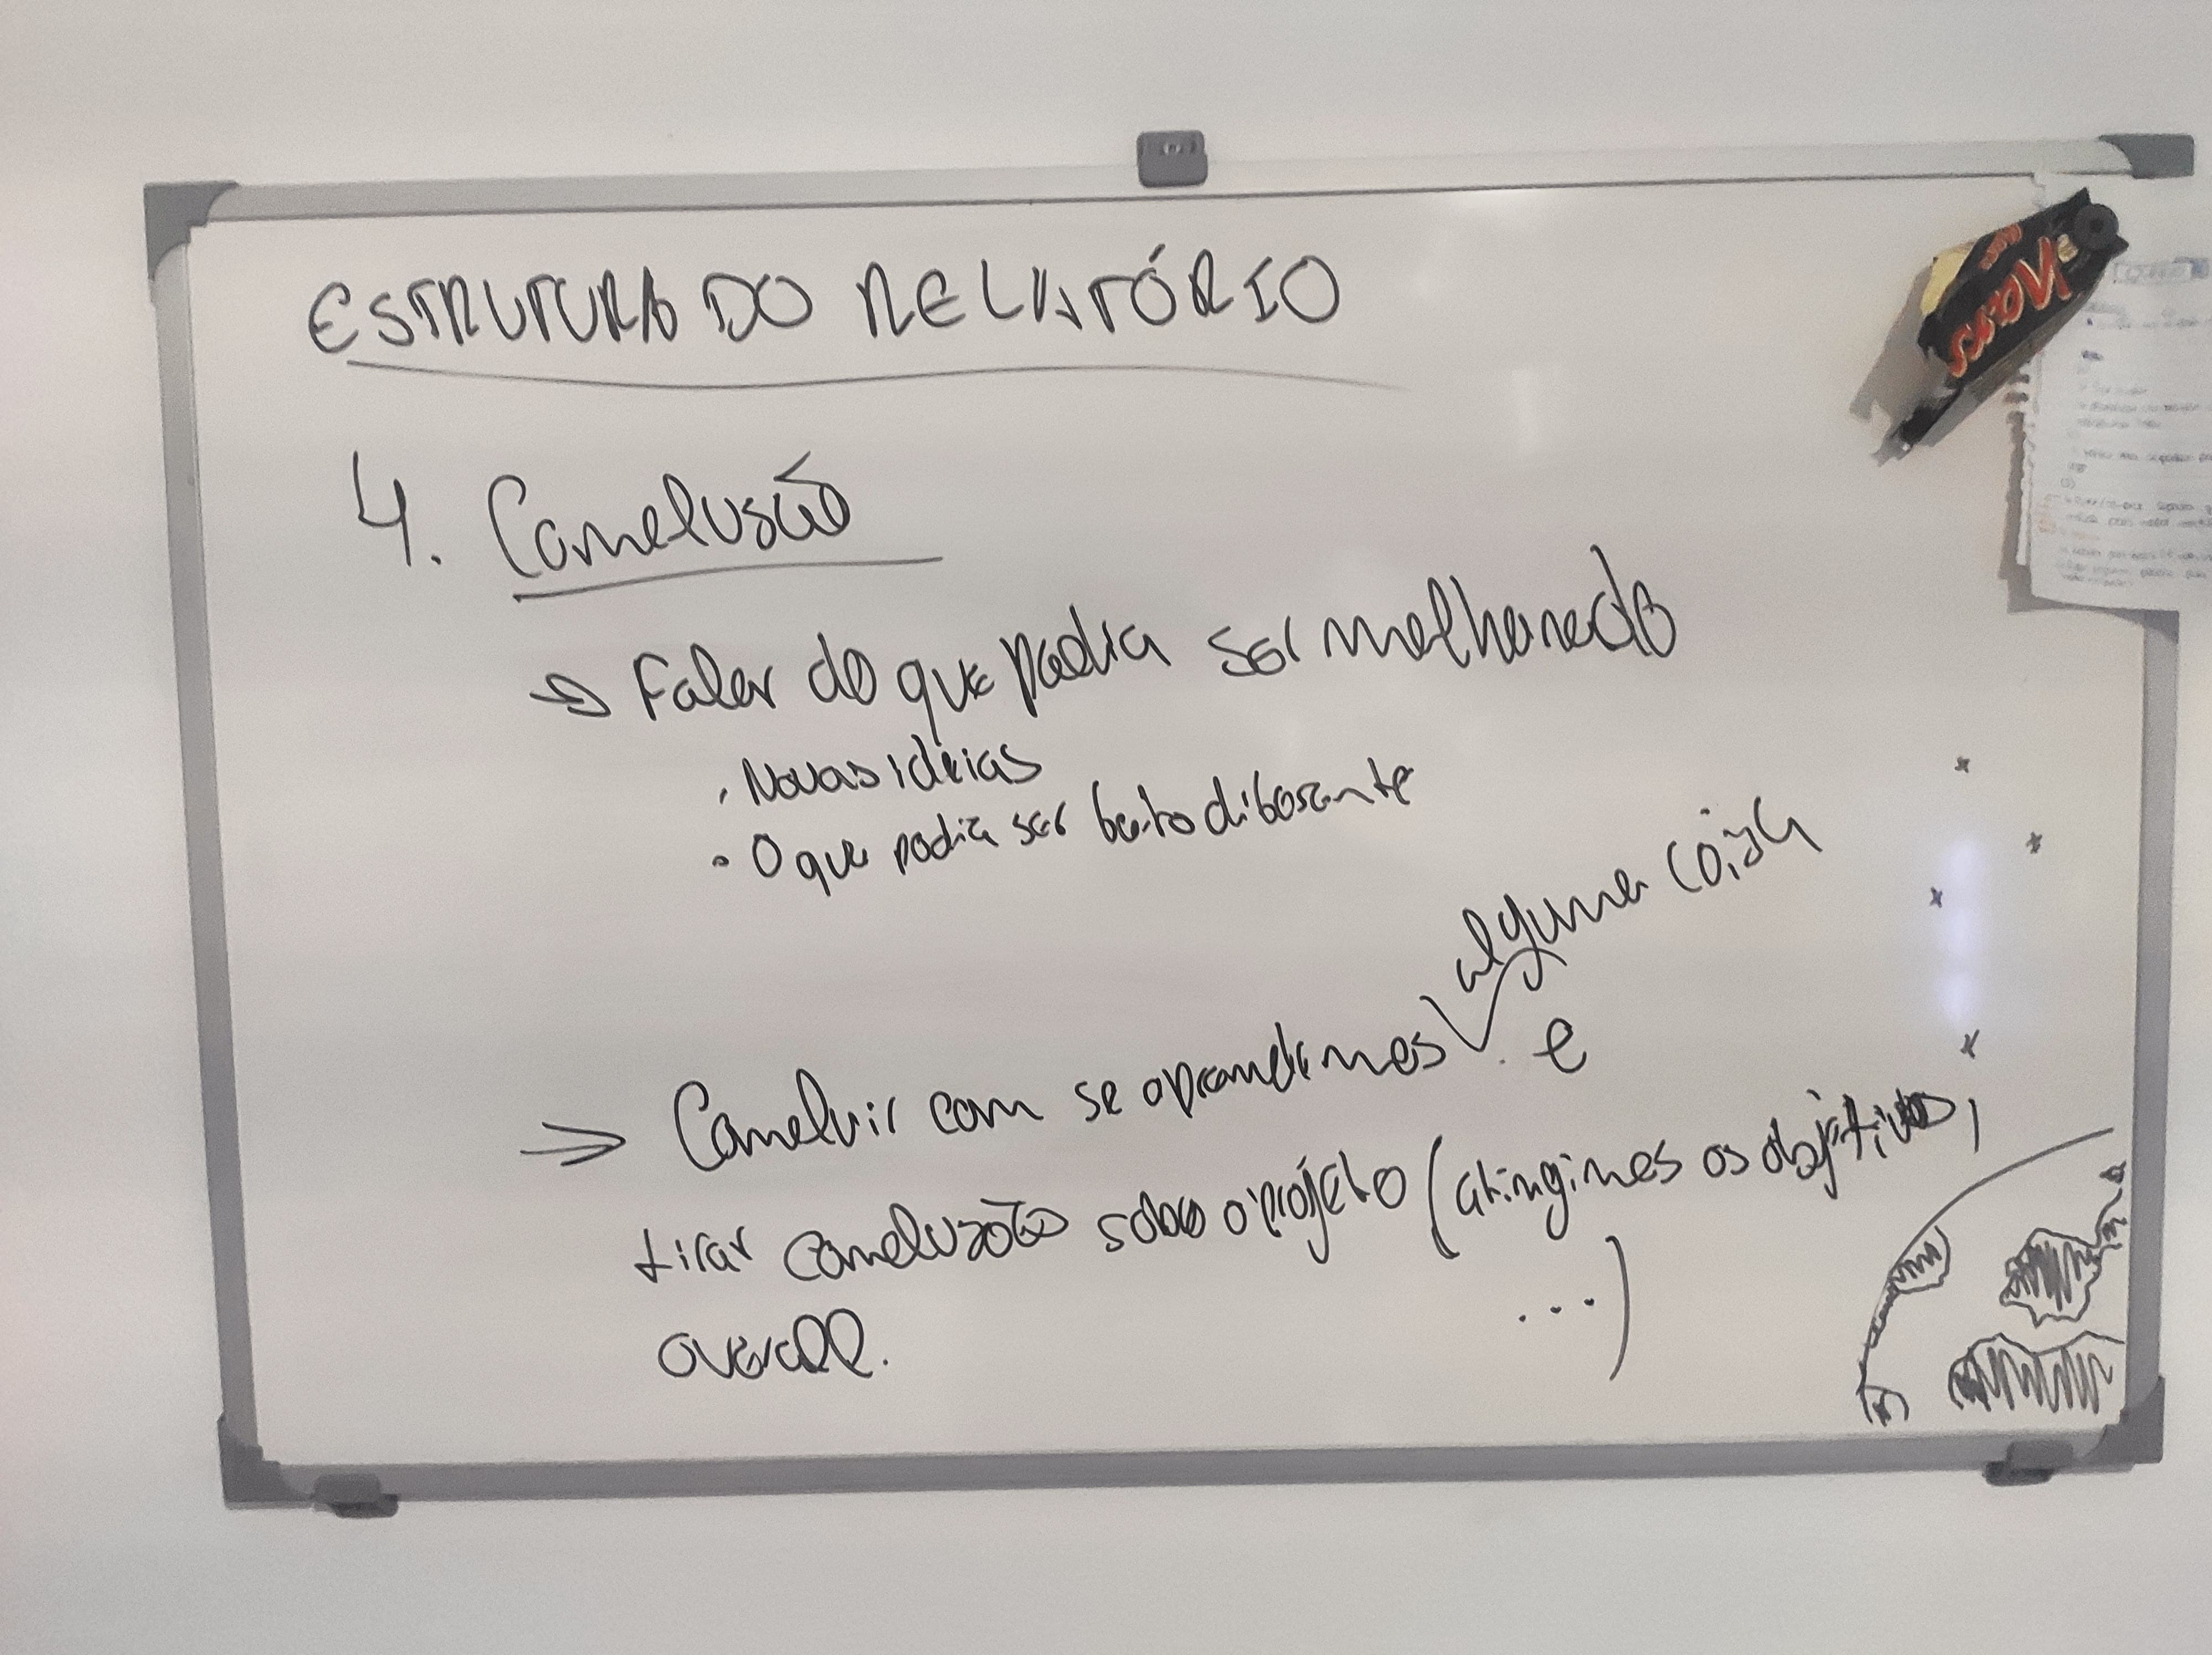 ESTRUTURA DO RELATÓRIO
4. Conclusão
→ Falar do que podia ser melhorado
• Novas ideias
• O que podia ser feito diferente
alguma coisa
→ Concluir com se aprendemos e
tirar conclusões sobre o projeto (atingimos os objetivos,
overall. ...)
Mars